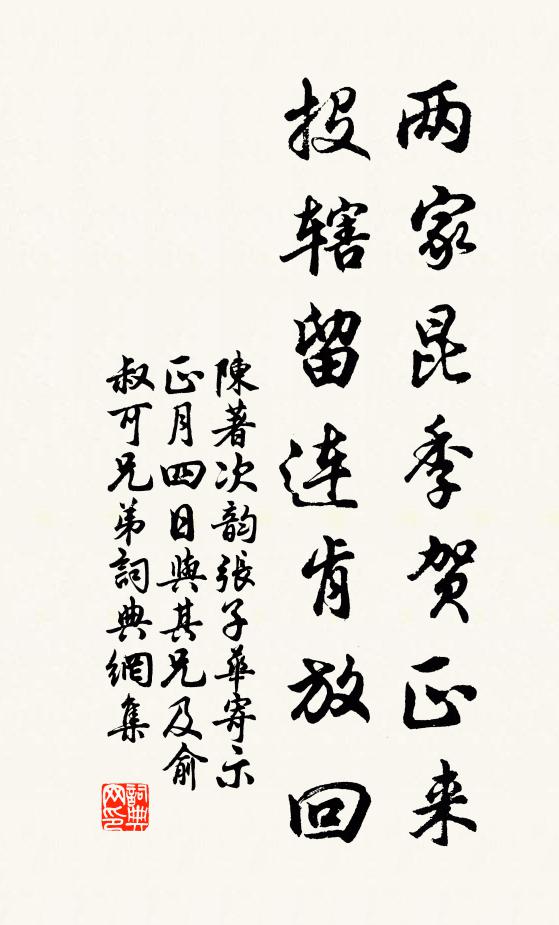 两家昆季贺正来
投辖留连肯放回
陳著次韵張子華寄示
正月四日與其兄及俞
叔可兄弟詞典網集
詞典网印